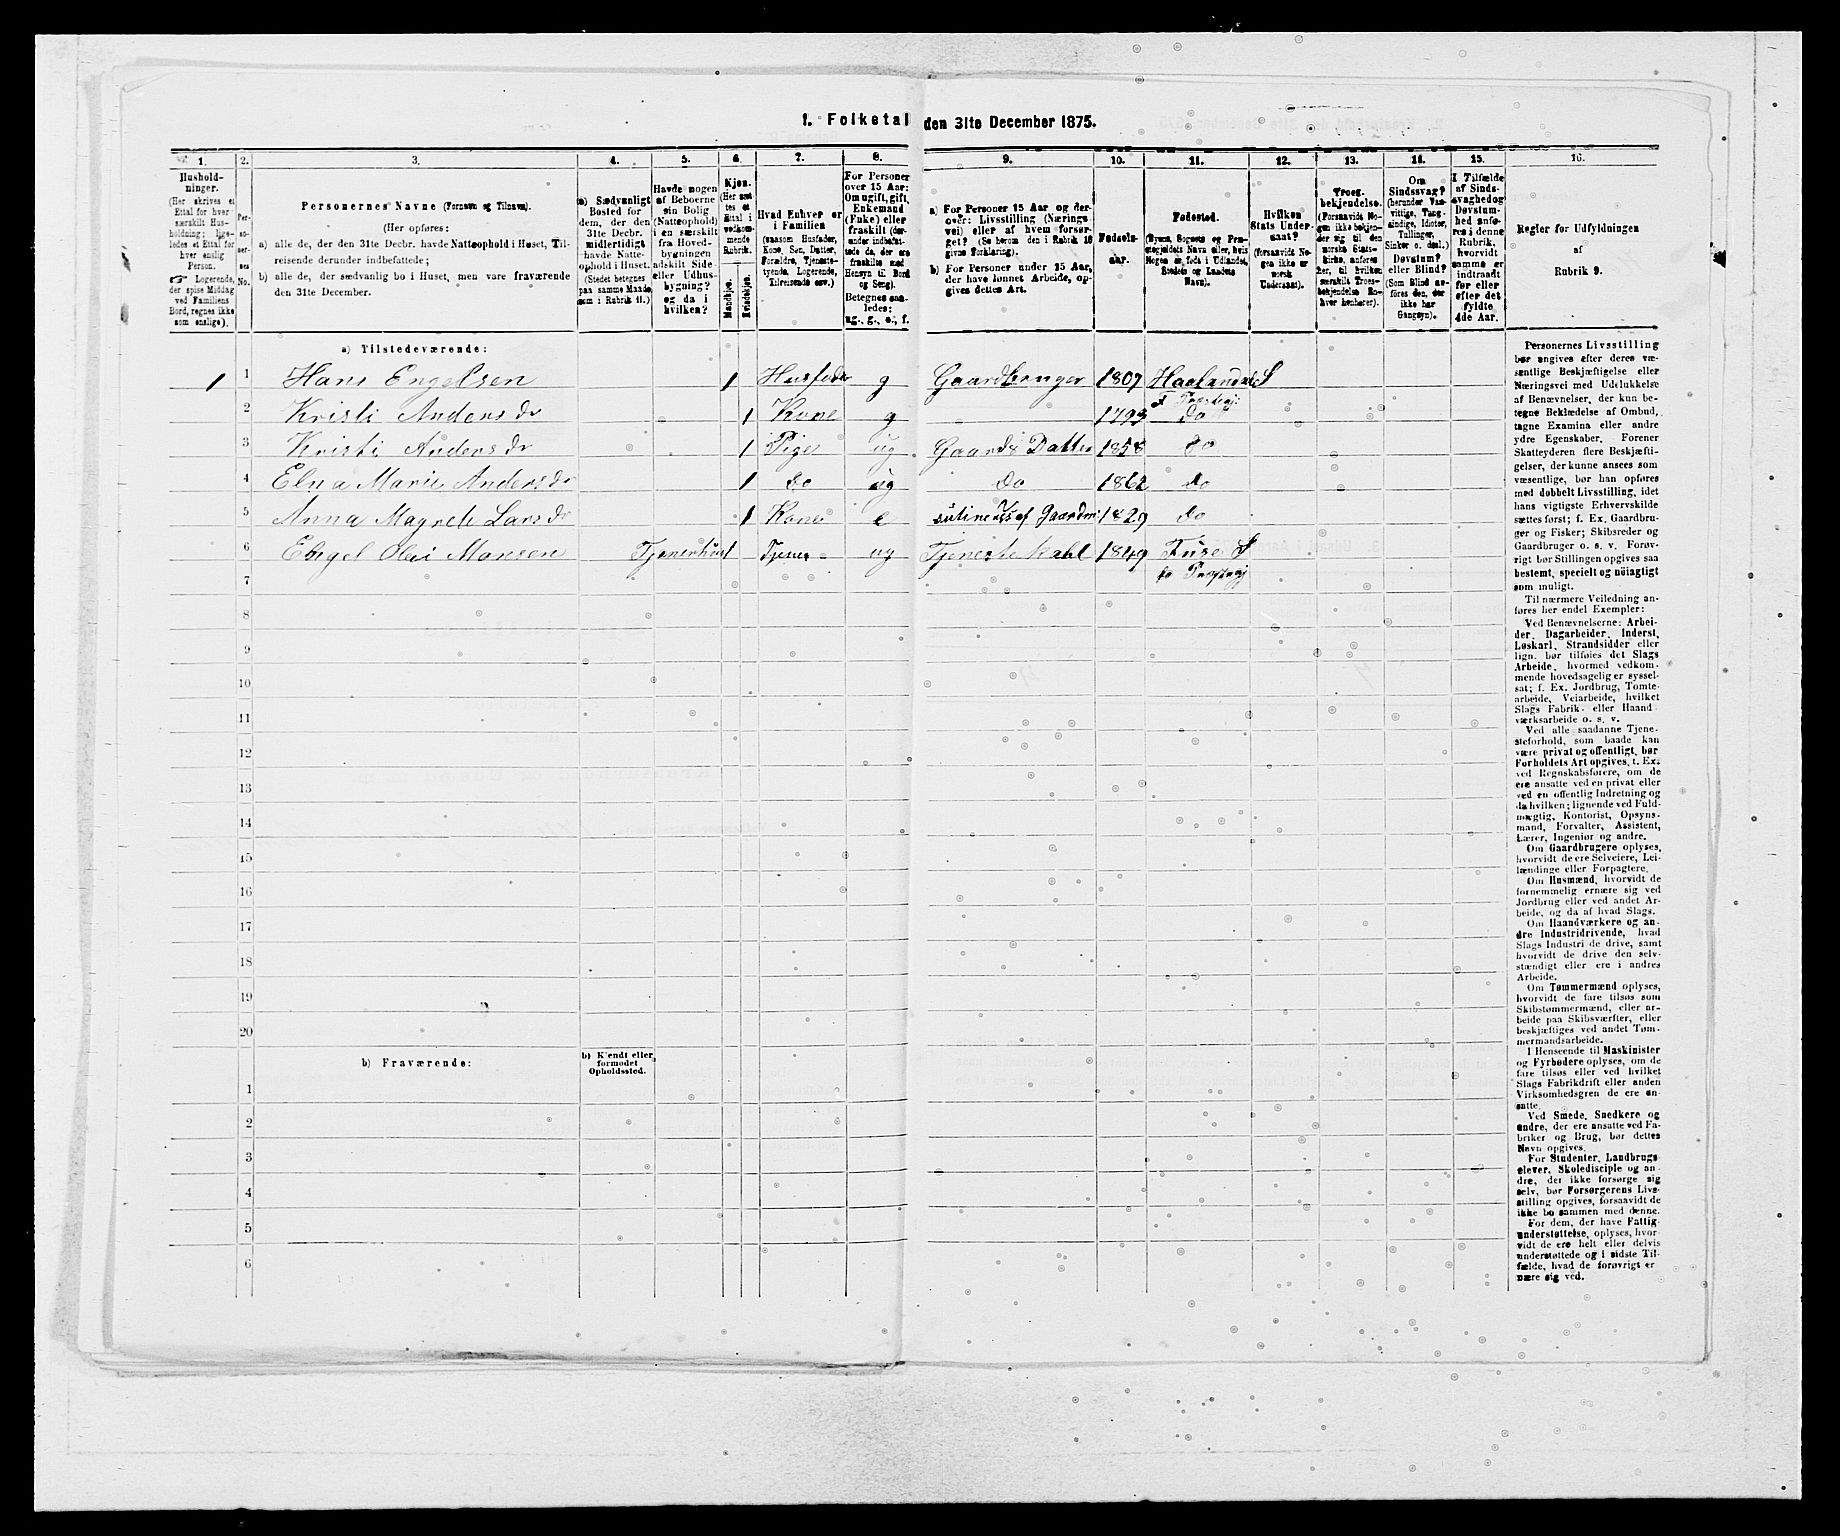 1. Folketal den 31te December 1875.
1. 2. 3. 4. 5. 6. 7. 8. 9. 10. 11. 12. 13. 14. 15. 16.
Husholdninger.
(Her skrives et
Ettal for hver
særskilt Husholdning; ligeledes
et Ettal for
hver enslig
Person.
Logerende,
der spise Middag
ved Familiens
Bord, regnes ikke
som enslige).
Personernes No.
Personernes Navne (Fornavn og Tilnavn).
(Her opføres:
a) alle de, der den 31te Decbr. havde Natteophold i Huset, Tilreisende
derunder indbefattede;
b) alle de, der sædvanlig bo i Huset, men vare fraværende
den 31te December.
a) Sædvanligt
Bosted for
dem, der den
31te Decbr.
midlertidigt
havde Natteophold
i Huset.
(Stedet betegnes
paa samme Maade
som i Rubrik 11.)
Havde nogen
af Beboerne
sin Bolig
(Natteophold)
i en særskilt
fra Hovedbygningen
adskilt Side
eller Udhusbygning?
og da i
hvilken?
Kjøn.
(Her sættes
et
Ettal i
vedkommende
Rubrik.
Mandkjøn.
Kvindekjøn.
Hvad Enhver er
i Familien
(saasom Husfader,
Kone, Søn, Datter,
Forældre, Tjenestetyende,
Logerende,
Tilreisende osv.)
For Personer
over 15 Aar:
Om ugift, gift,
Enkemand
(Enke) eller
fraskilt (derunder
indbefattede
da, der ere
fraskilte med
Hensyn til Bord
og Seng).
Betegnes saaledes:
ug., g., e., f.
a) For Personer 15 Aar og derover:
Livsstilling (Næringsvei)
eller af hvem forsørget?
(Se herom den i Rubrik 16
givne Forklaring).
b) For Personer under 15 Aar,
der have lønnet Arbeide, opgives
dettes Art.
Fødselsaar.
Fødested.
(Byens, Sognets og Præstegjeldets
Navn eller, hvis
Nogen er født i Udlandet,
Stedets og Landets
Navn).
Hvilken
Stats Undersaat?
(forsaavidt Nogen
ikke er
norsk
Undersaat).
Troesbekjendelse.
(Forsaavidt Nogen
ikke bekjender
sig til den
norske Statskirke,
anføres
her, til hvilken
særskilt Troesbekjendelse
Enhver
henhører).
Om
Sindssvag?
(herunder Vanvittige,
Tungsindige,
Idioter,
Tullinger,
Sinker o. desl.)
Døvstum?
eller Blind?
(Som Blind anføres
den, der
ikke har
Gangsyn).
I Tilfælde
af Sindssvaghed
og
Døvstumhed
anføres
i denne
Rubrik,
hvorvidt
samme er
indtraadt
før eller
efter det
fyldte
4de Aar.
Regler for Udfyldningen
af
Rubrik 9.
a) Tilstedeværende:
1 1 Hans Engelsen 1 Husfader g Gaardbruger 1807 Haalandsdal S
2 Kristi Andersdr 1 Kone g 1793 do
3 Kristi Andersdr 1 Pige ug Gaards Datter 1858 do
4 Elna Marie Andersdr 1 do ug do 1862 do
5 Anna Magrete Larsdr 1 Kone e af Gaardm 1829 do
6 Engel Olai Monsen 1 Tjener ug Tjeneste Kahl 1849 Fuse S
do Præstegj
7
8
9
10
11
12
13
14
15
16
17
18
19
20
b) Fraværende: b) Kjendt eller
formodet
Opholdssted.
1
2
3
4
5
6
Personernes Livsstilling
bør angives efter deres væsentlige
Beskjæftigelse eller
Næringsvei med Udelukkelse
af Benævnelser, der kun betegne
Beklædelse af Ombud,
tagne Examina eller andre
ydre Egenskaber. Forener
Skatteyderen flere Beskjæftigelser,
der kunne ansees som
væsentlige, bør han opføres
med dobbelt Livsstilling, idet
hans vigtigste Erhvervskilde
sættes først; f. Ex. Gaardbruger
og Fisker; Skibsreder og
Gaardbruger o. s. v. Forøvrigt
bør Stillingen opgives saa
bestemt, specielt og nøiagtigt
som muligt.
Til nærmere Veiledning anføres
her endel Exempler:
Ved Benævnelserne: Arbeider,
Dagarbeider, Inderst,
Løskarl, Strandsidder eller
lign. bør tilføies det Slags
Arbeide, hvormed vedkommende
hovedsagelig er sysselsat;
f. Ex. Jordbrug, Tomtearbeide,
Veiarbeide, hvilket
Slags Fabrik- eller Haandværksarbeide
o. s. v.
Ved alle saadanne Tjenesteforhold,
som baade kan
være privat og offentligt, bør
Forholdets Art opgives, t. Ex.
ved Regnskabsførere, om de
ere ansatte ved en privat eller
ved en offentlig Indretning og
da hvilken; lignende ved Fuldmægtig,
Kontorist, Opsynsmand,
Forvalter, Assistent,
Lærer, Ingeniør og andre.
Om Gaardbrugere oplyses,
hvorvidt de ere Selveiere, Leilændinge
eller Forpagtere.
Om Husmænd, hvorvidt de
fornemmelig ernære sig ved
Jordbrug eller ved andet Arbeide,
og da af hvad Slags.
Om Haandværkere og andre
Industridrivende, hvad
Slags Industri de drive, samt
hvorvidt de drive den selvstændigt
eller ere i andres
Arbeide.
Om Tømmermænd oplyses,
hvorvidt de fare tilsøs som
Skibstømmermænd, eller arbeide
paa Skibsværfter, eller
beskjæftiges ved andet Tømmermandsarbeide.
I Henseende til Maskinister
og Fyrbødere oplyses, om de
fare tilsøs eller ved hvilket
Slags Fabrikdrift eller anden
Virksomhedsgren de ere ansatte.
Ved Smede, Snedkere og
andre, der ere ansatte ved Fabriker
og Brug, bør dettes
Navn opgives.
For Studenter, Landbrugselever,
Skoledisciple og andre,
der ikke forsørge sig
selv, bør Forsørgerens Livsstilling
opgives, forsaavidt de
ikke bo sammen med denne.
For dem, der have Fattigunderstøttelse,
oplyses, hvorvidt
de ere helt eller delvis
understøttede og i sidste Tilfælde,
hvad de forøvrigt ernære
sig ved.